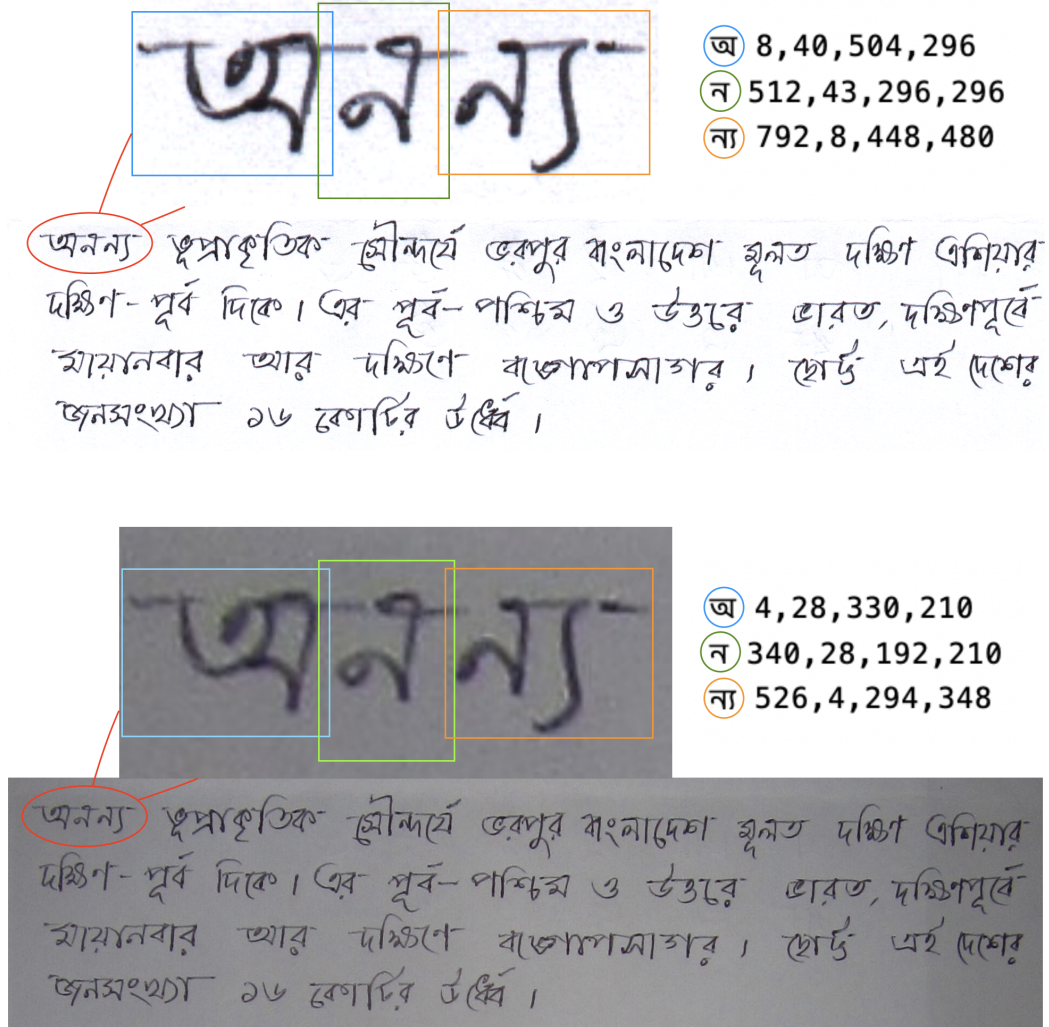 অনন্য
অ 8,40,504,296
ন 512,43,296,296
ন্য 792,8,448,480
অনন্য ভূপ্রাকৃতিক সৌন্দর্যে ভরপুর বাংলাদেশ মূলত দক্ষিণ এশিয়ার
দক্ষিণ-পূর্ব দিকে। এর পূর্ব-পশ্চিম ও উত্তরে ভারত, দক্ষিণপূর্বে
মায়ানবার আর দক্ষিণে বঙ্গোপসাগর। ছোট্ট এই দেশের
জনসংখ্যা ১৬ কোটির উর্ধ্বে।
অনন্য
অ 4,28,330,210
ন 340,28,192,210
ন্য 526,4,294,348
অনন্য ভূপ্রাকৃতিক সৌন্দর্যে ভরপুর বাংলাদেশ মূলত দক্ষিণ এশিয়ার
দক্ষিণ-পূর্ব দিকে। এর পূর্ব-পশ্চিম ও উত্তরে ভারত, দক্ষিণপূর্বে
মায়ানবার আর দক্ষিণে বঙ্গোপসাগর। ছোট্ট এই দেশের
জনসংখ্যা ১৬ কোটির উর্ধ্বে।